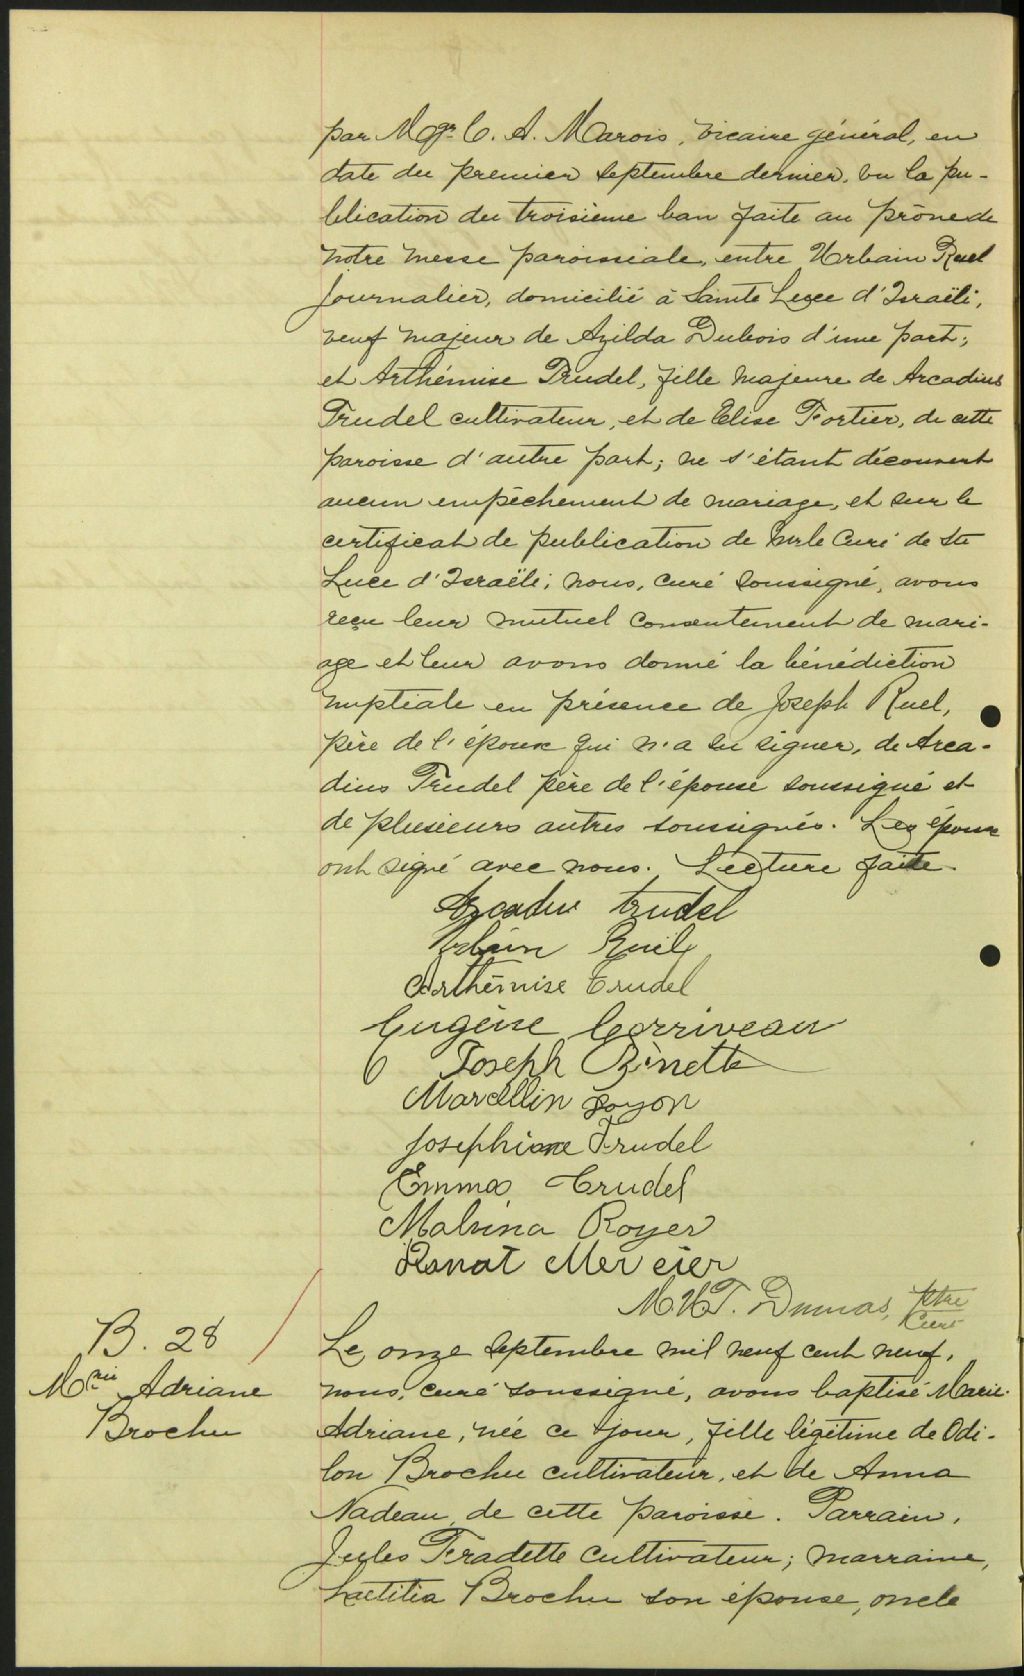 par Mgr C. A. Marois, vicaire général, en
date du premier septembre dernier, vu la pu-
blication du troisième ban faite au prône de
notre messe paroissiale, entre Urbain Ruel
journalier, domicilié à Sainte Luce d'Israëli,
veuf majeur de Azilda Dubois d'une part;
et Arthémise Trudel, fille majeure de Arcadius
Trudel cultivateur, et de Elise Fortier, de cette
paroisse d'autre part; ne s'étant découvert
aucun empêchement de mariage, et sur le
certificat de publication de Mr le Curé de Ste
Luce d'Israëli; nous, curé soussigné, avons
reçu leur mutuel consentement de mari-
age et leur avons donné la bénédiction
nuptiale en présence de Joseph Ruel,
père de l'époux qui n'a su signer, de Arca-
dius Trudel père de l'épouse soussigné et
de plusieurs autres soussignés. Les époux
ont signé avec nous. Lecture faite.
Arcadius trudel
Urbain Ruel
Arthémise Trudel
Eugène Corriveau
Joseph Binette
Marcellin Goyon
Josephine Trudel
Emma Trudel
Malvina Royer
Donat Mercier
M. H. T. Dumas, Ptre
Curé
B. 28
Mrie Adriane
Brochu
Le onze septembre mil neuf cent neuf,
nous, curé soussigné, avons baptisé Marie-
Adriane, née ce jour, fille légitime de Odi-
lon Brochu cultivateur, et de Anna
Nadeau, de cette paroisse. Parrain,
Jules Fradette cultivateur; marraine,
Lætitia Brochu son épouse, oncle